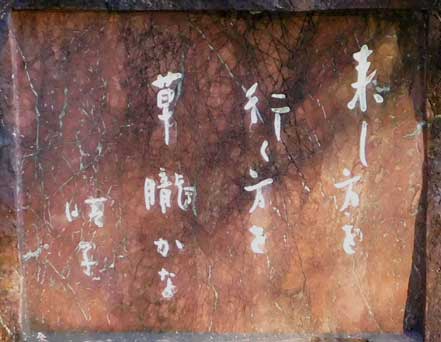 来し方を
行く方を
草朧かな